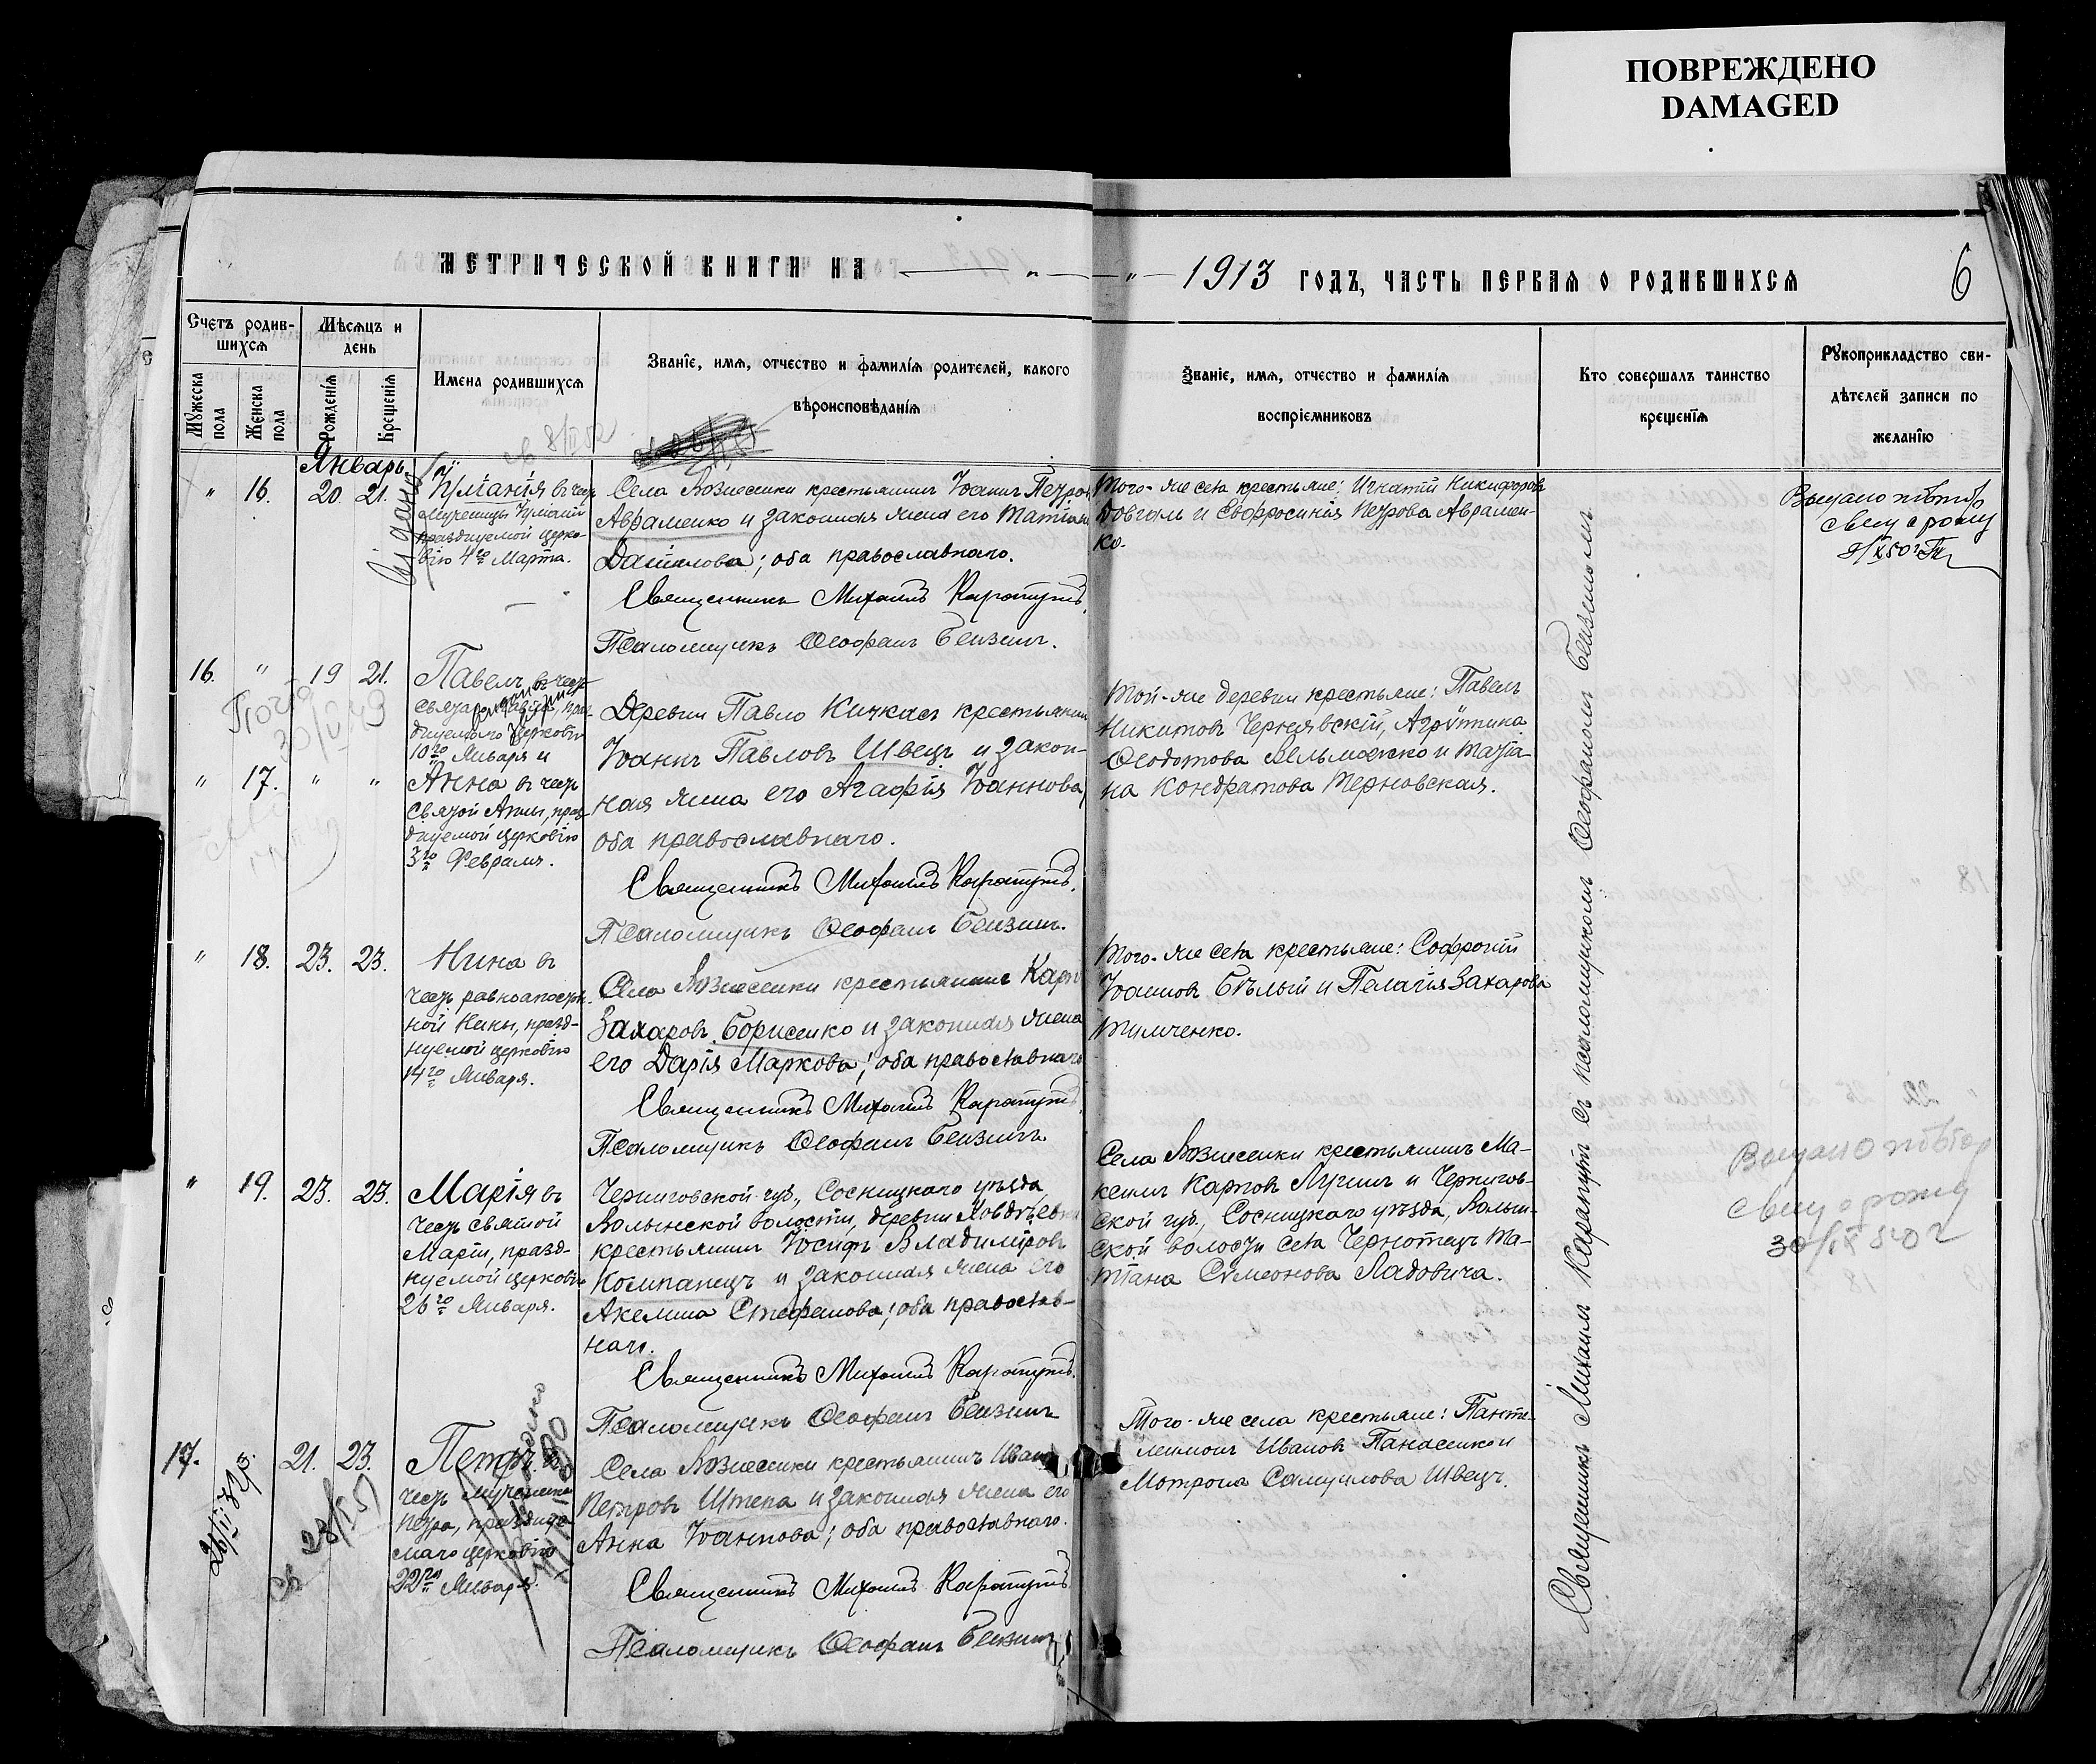 ПОВРЕЖДЕНО
DAMAGED
МЕТРИЧЕСКОЙ КНИГИ НА
1913 ГОДЪ, ЧАСТЬ ПЕРВАЯ О РОДИВШИХСЯ
6
Счетъ родив-
шихся
Мужеска пола
Женска пола
Мѣсяцъ и
день
Рожденія
Крещенія
Имена родившихся
Званіе, имя, отчество и фамилія родителей, какого
вѣроисповѣданія
Званіе, имя, отчество и фамилія
воспріемниковъ
Кто совершалъ таинство
крещенія
Рукоприкладство сви-
дѣтелей записи по
желанію
Январь
" 16. 20. 21.
Іуліанія въ честь
мученицы Іуліаніи
празднуемой церко-
вію 4го Марта.
Села Вознесенки крестьянинъ Іоаннъ Петровъ
Авраменко и законная жена его Татіана
Даніилова; оба православнаго.
Священникъ Михаилъ Карапутъ.
Псаломщикъ Ѳеофанъ Бензинъ.
Того-же села крестьяне: Игнатій Никифоровъ
Довгаль и Евфросинія Петрова Аврамен-
ко.
Выдано повтор
свид о рожд
16. " 19 21.
Павелъ въ честь
10го Января и
Деревни Павло Кичкасъ крестьянинъ
Іоаннъ Павловъ Швецъ и закон-
ная жена его Агафія Іоаннова,
оба православнаго.
Священникъ Михаилъ Карапутъ.
Псаломщикъ Ѳеофанъ Бензинъ.
Той-же деревни крестьяне: Павелъ
Никитовъ Чернявскій, Агрѵппина
Ѳеодотова Вельможко и Татіа-
на Кондратова Терновская.
" 17. " "
Анна въ честь
Святой Анны, праз-
днуемой церковію
3го Февраля.
" 18. 23. 23.
Нина въ
честь равноапостоль-
ной Нины, празд-
нуемой церковію
14го Января.
Села Вознесенки крестьянинъ Карпъ
Захаровъ Борисенко и законная жена
его Дарія Маркова; оба православнаго
Священникъ Михаилъ Карапутъ.
Псаломщикъ Ѳеофанъ Бензинъ.
Того-же села крестьяне: Софроній
Іоанновъ Бѣлый и Пелагія Захарова
Тимченко.
" 19. 23. 23.
Марія въ
честь святой
Маріи, празд-
нуемой церковію
26го Января.
Черниговской губ., Сосницкаго уѣзда,
Волынской волости, деревни
крестьянинъ Іосифъ Владиміровъ
Компанецъ и законная жена его
Акелина Стефанова; оба православ-
наго.
Священникъ Михаилъ Карапутъ.
Псаломщикъ Ѳеофанъ Бензинъ
Села Вознесенки крестьянинъ Ма-
Карповъ и Чернигов-
ской губ., Сосницкаго уѣзда, Волын-
ской волости села Чернотецъ Та-
тіана Сѵмеонова Ладовича.
Выдано повтор
свид о рожд
30/IX 50 г
17. 21. 23.
Петръ въ
честь мученика
Петра, праздну-
емаго церковію
22го Января.
Села Вознесенки крестьянинъ Иванъ
Петровъ Штепа и законная жена его
Анна Іоаннова; оба православнаго.
Священникъ Михаилъ Карапутъ
Псаломщикъ Ѳеофанъ Бензинъ
Того-же села крестьяне: Панте-
леимонъ Ивановъ Панасенко и
Мотрона Самуилова Швецъ.
Священникъ Михаилъ Карапутъ съ псаломщикомъ Ѳеофаномъ Бензиномъ